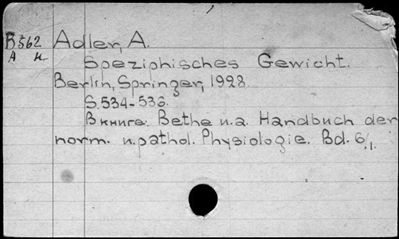 B562 Adler, A.
A н
Speziphisches Gewicht.
Berlin, Springer, 1928.
S. 534-536
В книге: Bethe u.a. Handbuch der
norm. u. pathol. Physiologie. Bd. 6/1.